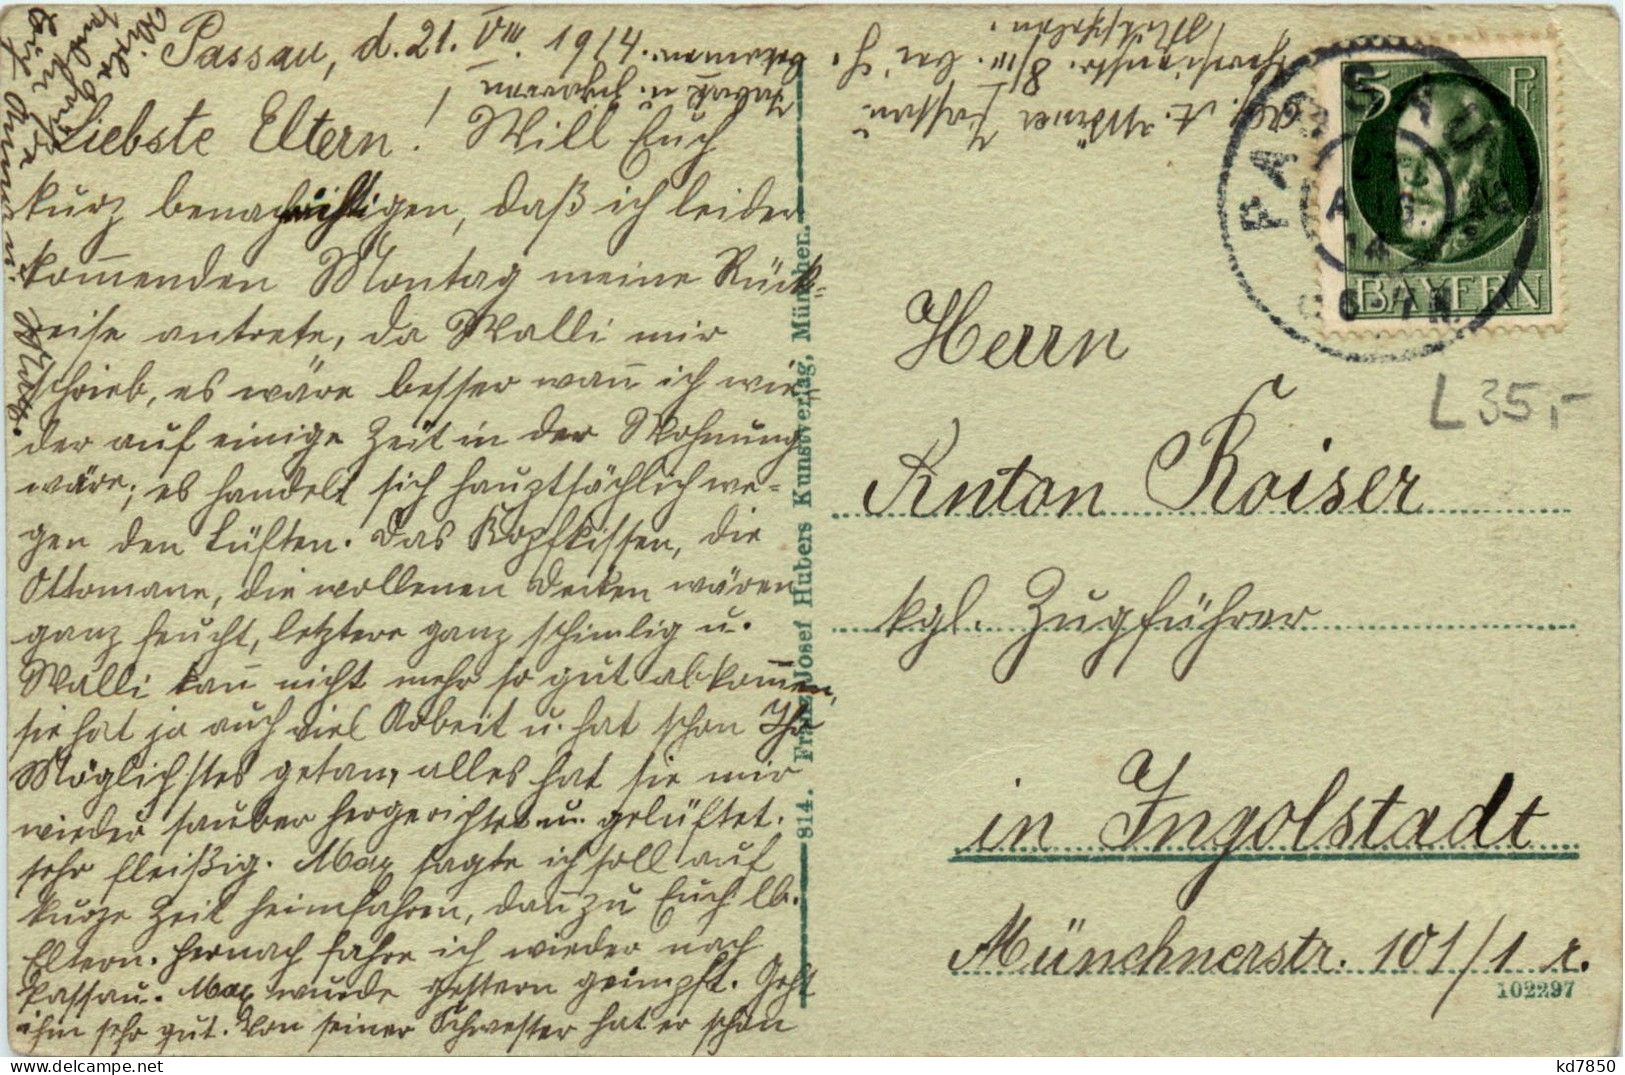 Passau, d. 21. VIII. 1914.
Liebste Eltern! Will Euch
kurz benachrichtigen, daß ich leider
kom̅enden Montag meine Rück=
reise antrete, da Walli mir
schrieb, es wäre besser wan̅ ich wie
der auf einige Zeit in der Wohnung
wäre; es handelt sich hauptsächlich we=
gen den Lüften. Das Kopfkissen, die
Ottomane, die wollenen Decken wären
ganz feucht, letztere ganz schimlig u.
Walli kan̅ nicht mehr so gut abkom̅en,
sie hat ja auch viel Arbeit u. hat schon Ihr
Möglichstes getan, alles hat sie mir
wieder sauber hergerichtet u. gelüftet.
sehr fleißig. Max sagte ich soll auf
kurze Zeit heimfahren, dan̅ zu Euch lb.
Eltern. Hernach fahre ich wieder nach
Passau. Max wurde gestern geimpft. Geht
ihm sehr gut. Von seiner Schwester hat er schon
Tabak u. Zigarren
bekommen.
Viele Grüße
Passau
814. Franz Josef Hubers Kunstverlag, München.
PASSAU
AUG.
14
5 Pf
BAYERN
L 35,-
Herrn
Anton Kaiser
kgl. Zugführer
in Ingolstadt
Münchnerstr. 101/1 r.
102297
kd7850